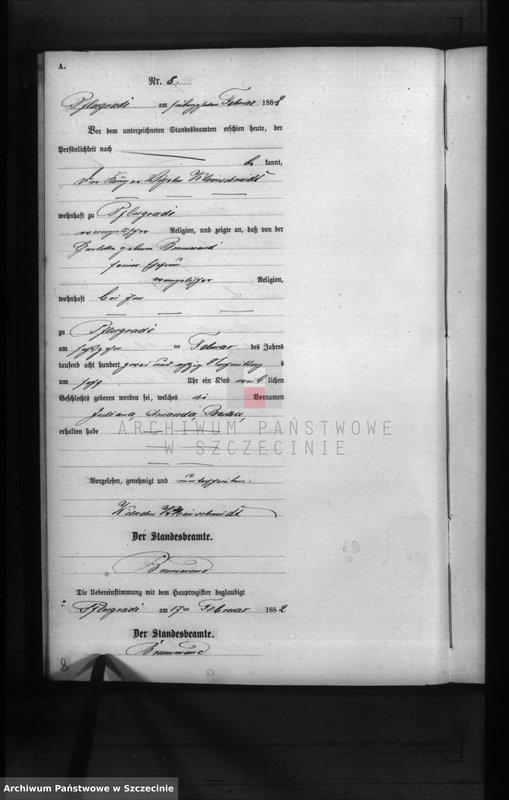 A.
Nr. 8.
Pflugrade am siebzehnten Februar 1882
Vor dem unterzeichneten Standesbeamten erschien heute, der
Persönlichkeit nach
be kannt,
der Wilhelm Kleinschmidt
wohnhaft zu Pflugrade
evangelischer Religion, und zeigte an, daß von der
geborene
seiner Ehefrau
evangelischer Religion,
wohnhaft bei ihm
zu Pflugrade
am sechzehnten Februar des Jahres
tausend acht hundert zwei und achtzig Vormittags
um Uhr ein Kind weiblichen
Geschlechts geboren worden sei, welches die Vornamen
Juliana Amanda Berta
erhalten habe
ARCHIWUM PAŃSTWOWE
W SZCZECINIE
Vorgelesen, genehmigt und unterschrieben.
Kleinschmidt
Der Standesbeamte.
Die Uebereinstimmung mit dem Hauptregister beglaubigt
Pflugrade am 17ten Februar 1882
Der Standesbeamte.
8
Archiwum Państwowe w Szczecinie